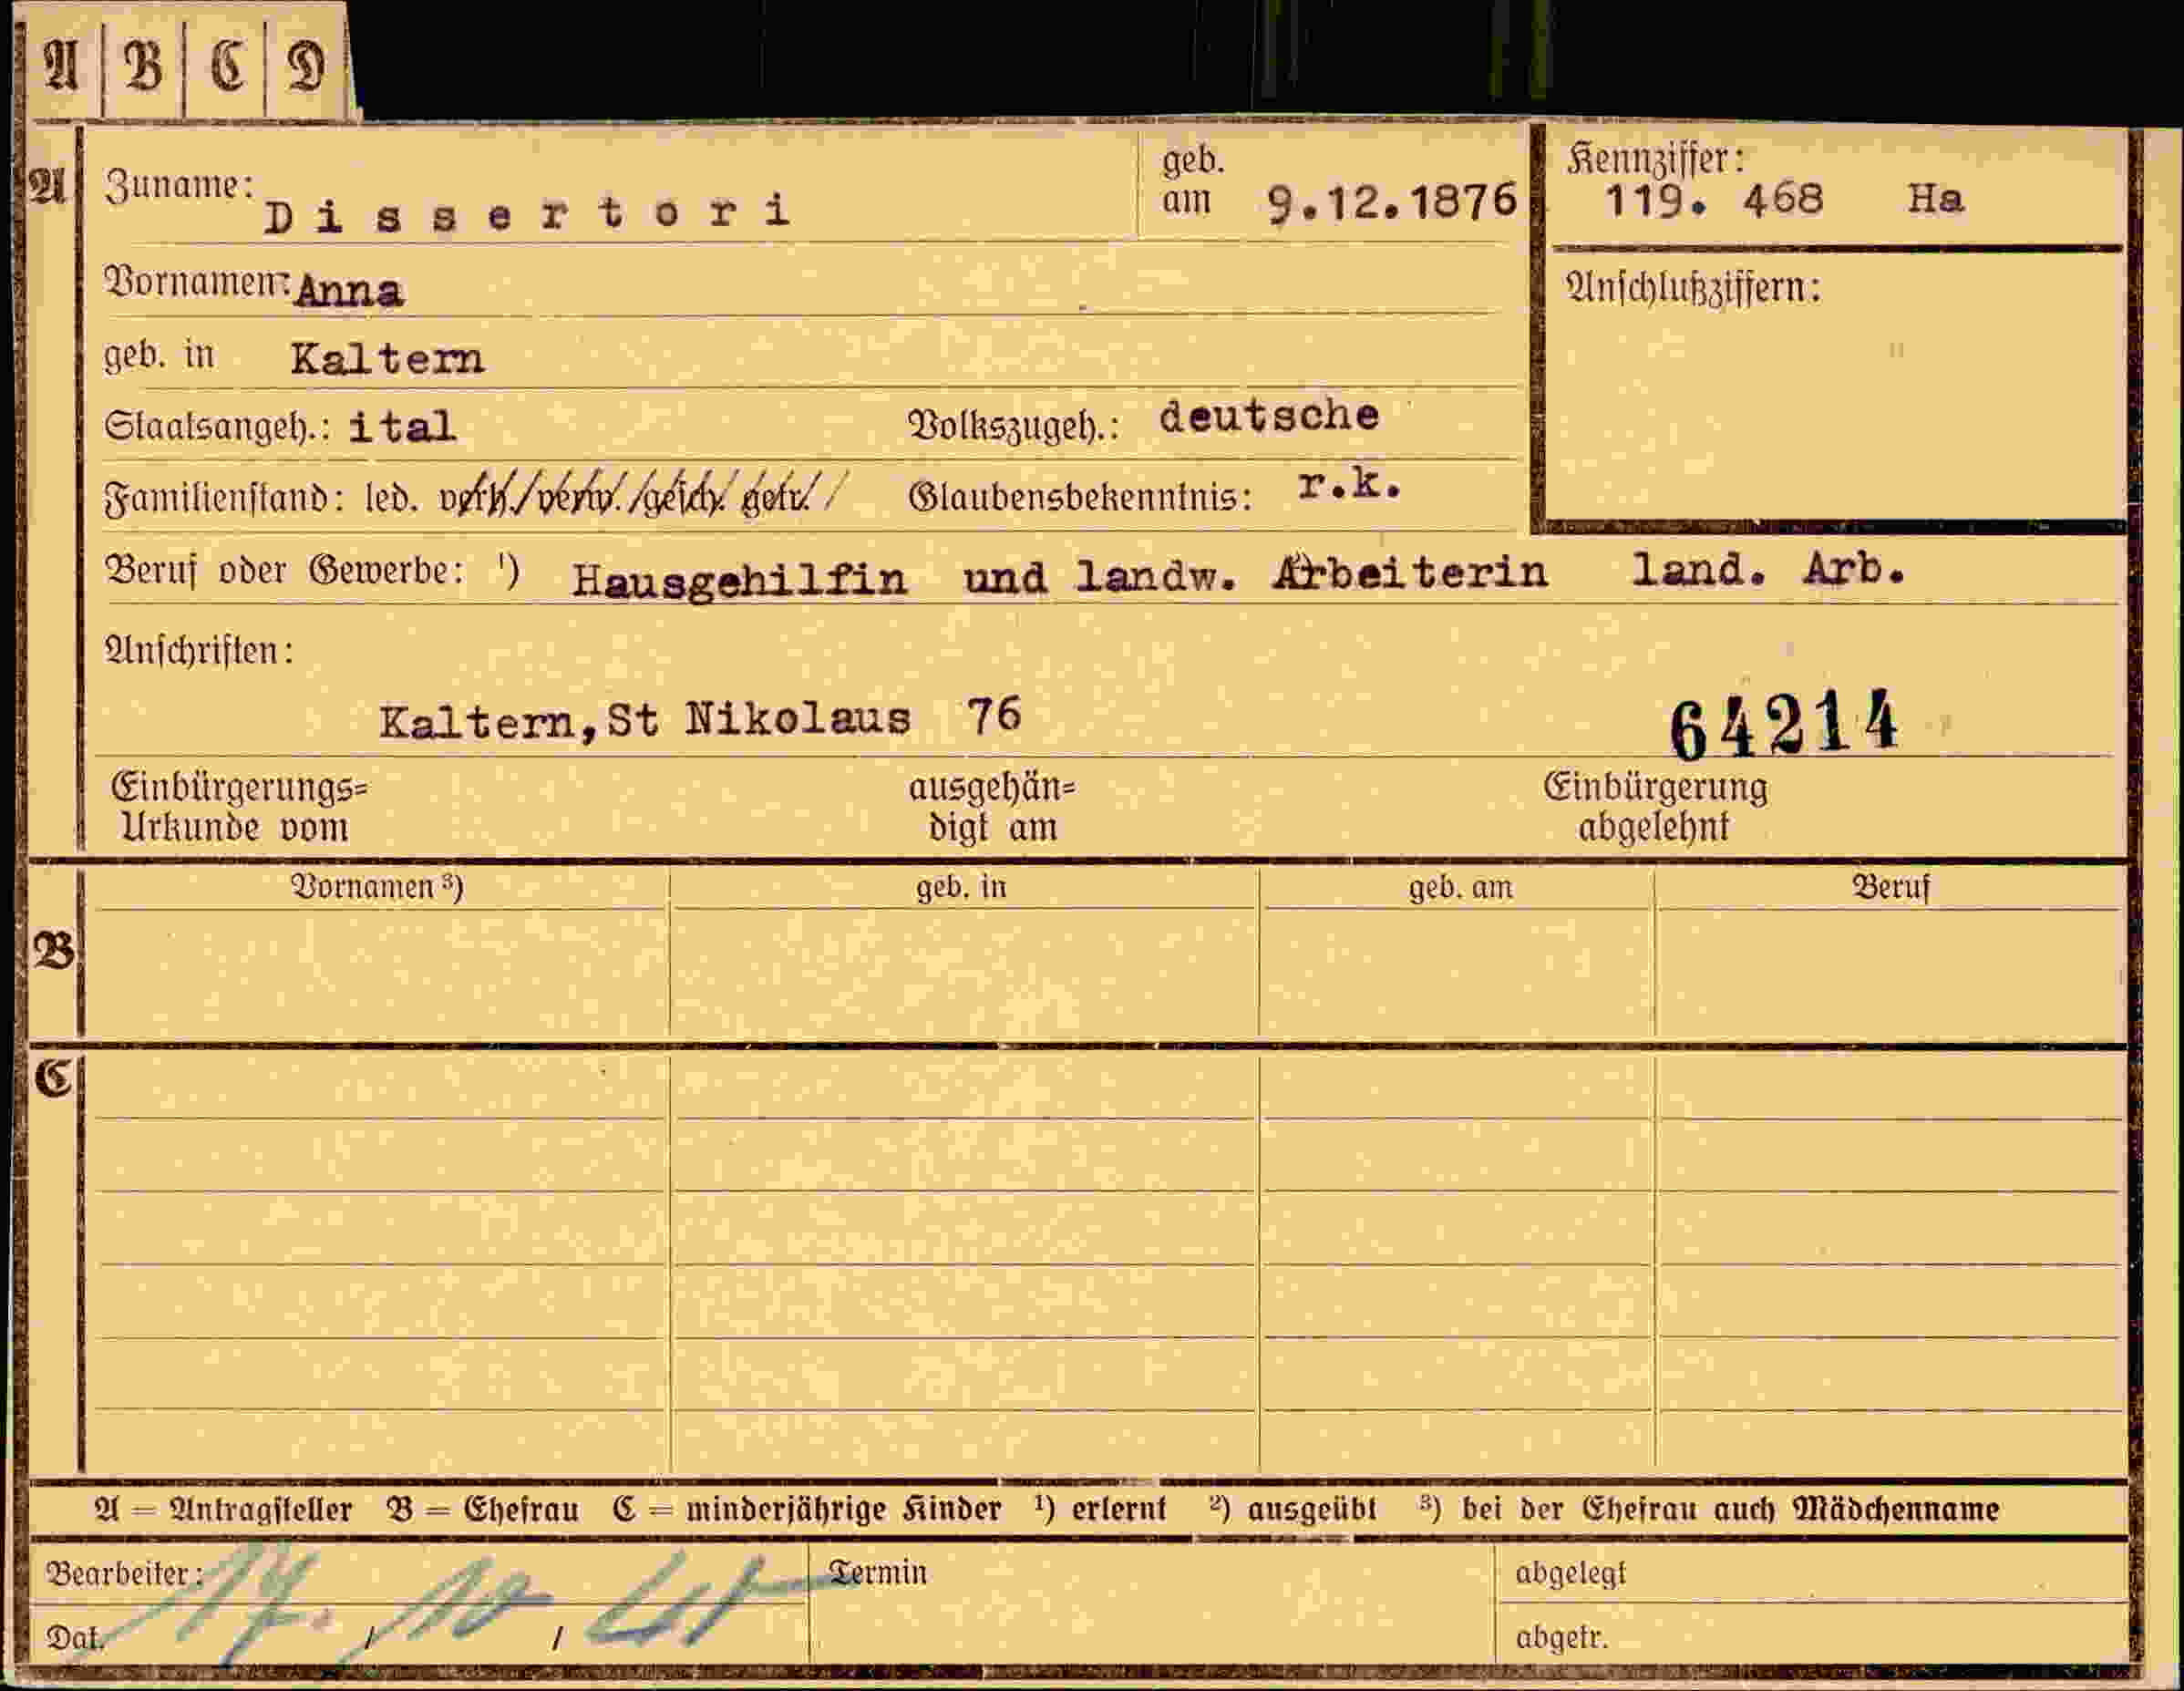 A B C D
A Zuname: Dissertori geb. am 9.12.1876 Kennziffer: 119. 468 Ha
Vornamen: Anna Anschlußziffern:
geb. in Kaltern
Staatsangeh.: ital Volkszugeh.: deutsche
Familienstand: led. verh./verw./gesch./getr./ Glaubensbekenntnis: r.k.
Beruf oder Gewerbe: ¹) Hausgehilfin und landw. Arbeiterin land. Arb.
Anschriften:
Kaltern,St Nikolaus 76 64214
Einbürgerungs= ausgehän= Einbürgerung
Urkunde vom digt am abgelehnt
Vornamen ³) geb. in geb. am Beruf
B
C
A = Antragsteller B = Ehefrau C = minderjährige Kinder ¹) erlernt ²) ausgeübt ³) bei der Ehefrau auch Mädchenname
Bearbeiter: Termin abgelegt
Dat. 17. / 10 / abgetr.